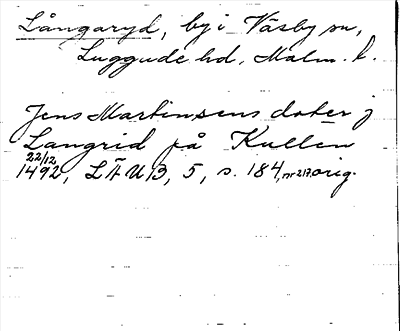 Långaryd, by i Väsby sn,
Luggude hd, Malm. l.
Jens Martinsens doter j
Langrid på Kullen
22/12
1492, LÄUB, 5, s. 184, nr 217. orig.